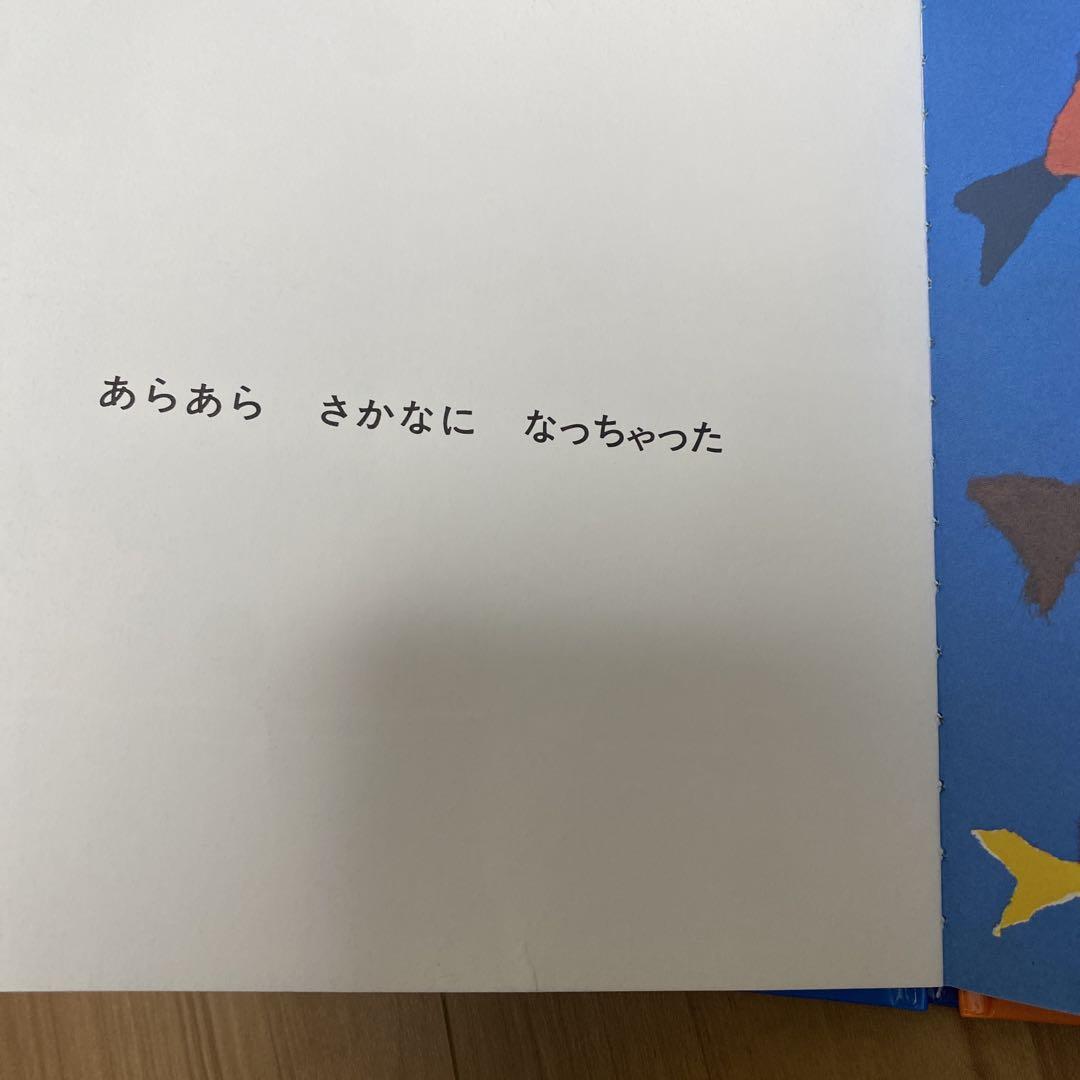 あらあら　さかなに　なっちゃった